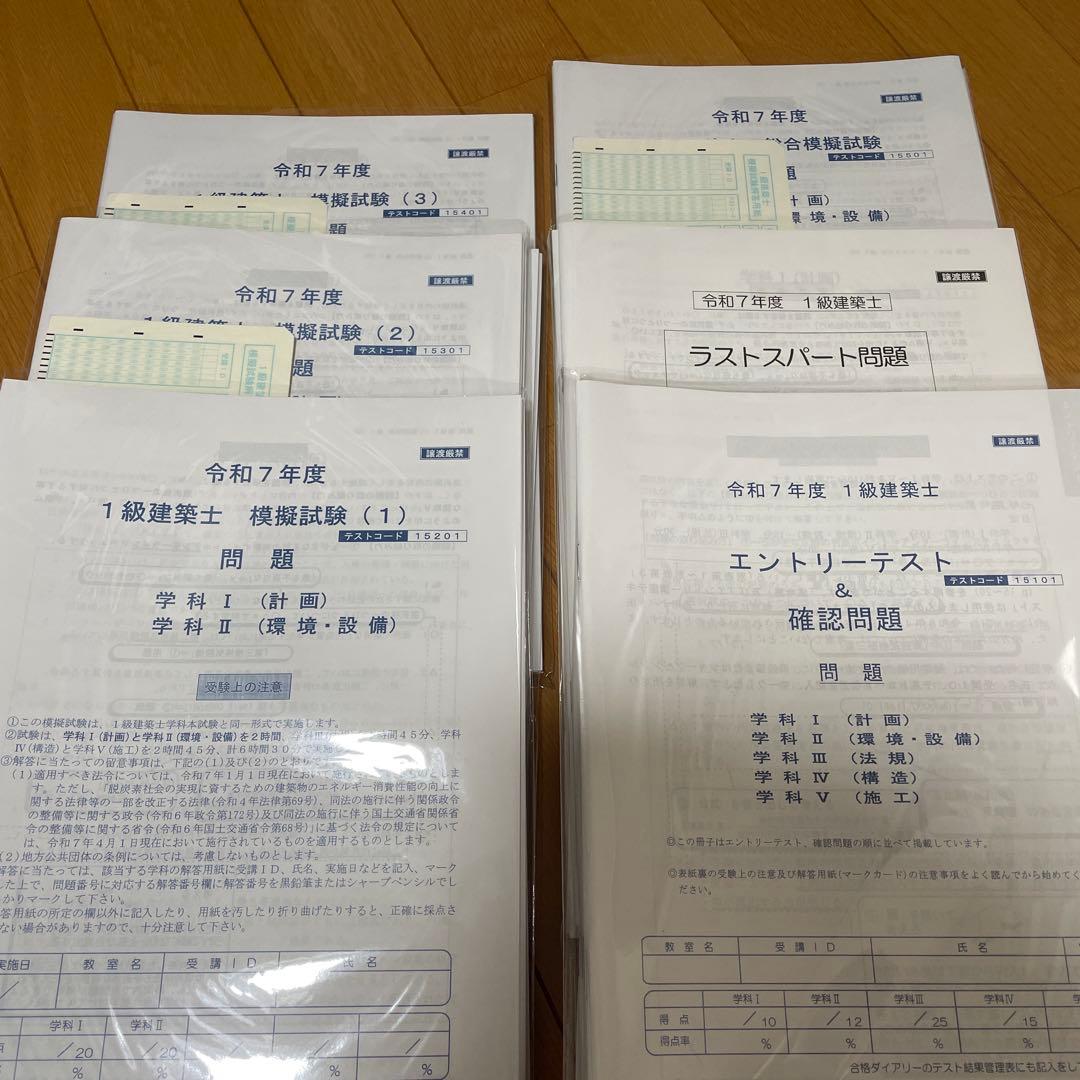 譲渡厳禁
令和7年度
模擬試験(3)
テストコード 15401
題
譲渡厳禁
令和7年度
模擬試験(2)
テストコード 15301
題
譲渡厳禁
令和7年度
1級建築士 模擬試験(1)
テストコード 15201
問題
学科Ⅰ (計画)
学科Ⅱ (環境・設備)
受験上の注意
①この模擬試験は、1級建築士学科本試験と同一形式で実施します。
②試験は、学科Ⅰ(計画)と学科Ⅱ(環境・設備)を2時間、
時間45分、学科
Ⅳ(構造)と学科Ⅴ(施工)を2時間45分、計6時間30分で実施
③解答に当たっての留意事項は、下記の(1)及び(2)のとおりで
(1)適用すべき法令については、令和7年1月1日現在において施行
ものとしま
す。ただし、「脱炭素社会の実現に資するための建築物のエネルギー消費性能の向上に
関する法律等の一部を改正する法律(令和4年法律第69号)、同法の施行に伴う関係政令
の整備等に関する政令(令和6年政令第172号)及び同法の施行に伴う国土交通省関係省
令の整備等に関する省令(令和6年国土交通省令第68号)」に基づく法令の規定について
は、令和7年4月1日現在において施行されているものを適用するものとします。
(2)地方公共団体の条例については、考慮しないものとします。
解答に当たっては、該当する学科の解答用紙に受講ID、氏名、実施日などを記入、マーク
した上で、問題番号に対応する解答番号欄に解答番号を黒鉛筆またはシャープペンシルでし
っかりマークして下さい。
答用紙の所定の欄以外に記入したり、用紙を汚したり折り曲げたりすると、正確に採点さ
ない場合がありますので、十分注意して下さい。
実施日 教室名 受講ID 氏名
学科Ⅰ 学科Ⅱ
点 /20 /20
% %
譲渡厳禁
令和7年度
総合模擬試験
テストコード 15501
題
計画)
環境・設備)
譲渡厳禁
令和7年度 1級建築士
ラストスパート問題
譲渡厳禁
令和7年度 1級建築士
エントリーテスト
テストコード 15101
&
確認問題
問題
学科Ⅰ (計画)
学科Ⅱ (環境・設備)
学科Ⅲ (法規)
学科Ⅳ (構造)
学科Ⅴ (施工)
◎この冊子はエントリーテスト、確認問題の順に並べて掲載しています。
◎表紙裏の受験上の注意及び解答用紙(マークカード)の注意事項をよく読んでから始めてく
ださい。
教室名 受講ID 氏名
学科Ⅰ 学科Ⅱ 学科Ⅲ 学科Ⅳ
得点 /10 /12 /25 /15
得点率 % % % %
合格ダイアリーのテスト結果管理表にも記入をし